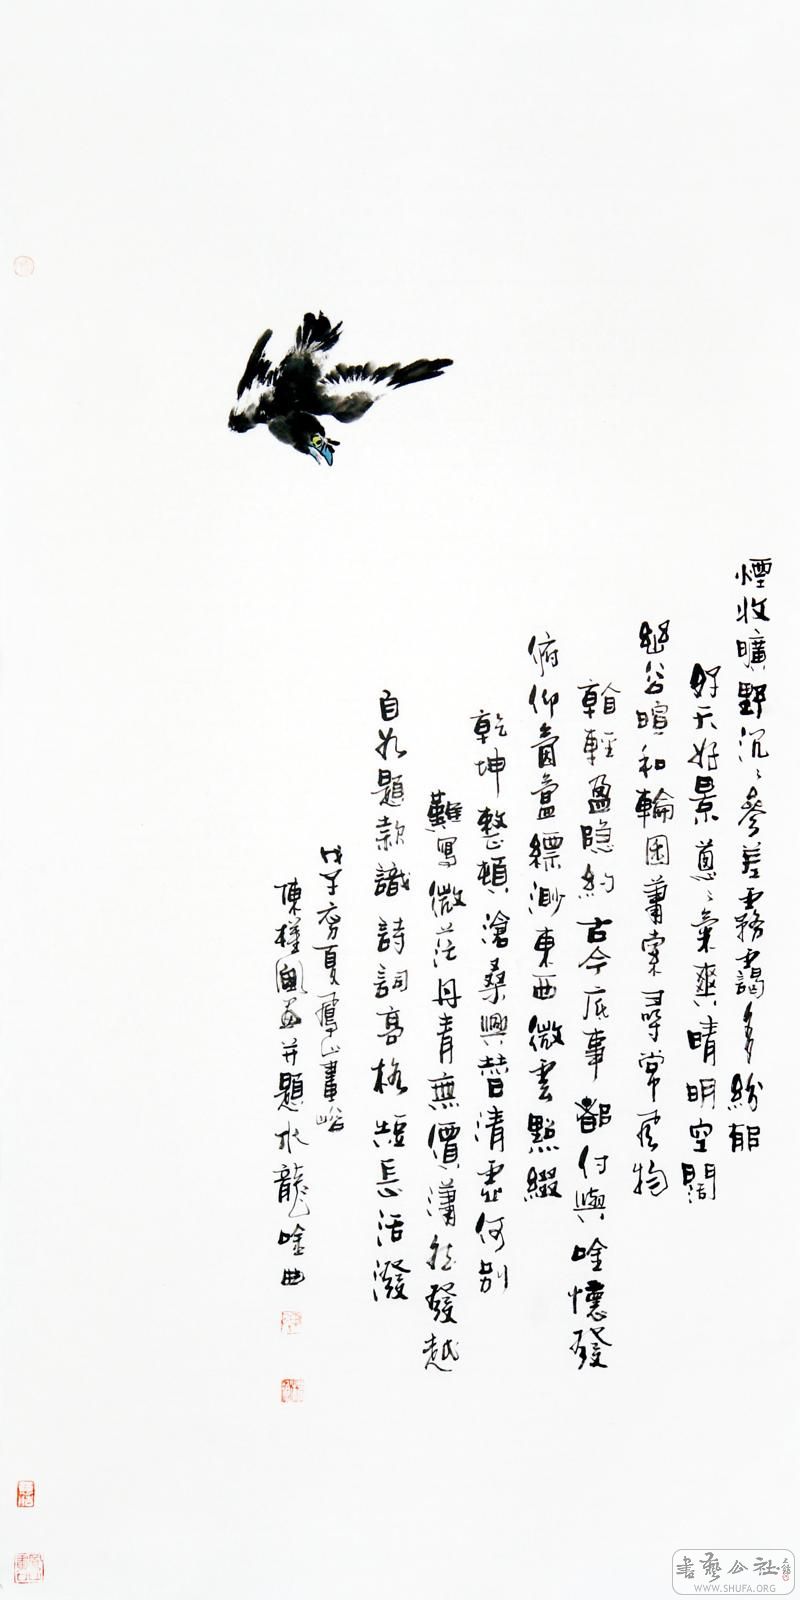 煙收曠野沉沉參差霧靄多紛郁
好天好景蔥蔥氣爽晴明空闊
谷暄和輪囷蕭索尋常風物
輕盈隱約古今底事都付與吟懷發
俯仰縹渺東西微雲點綴
乾坤整頓滄桑興替清虛何別
難寫微茫丹青無價瀟然發越
自如題款識詩詞高格短長活潑
戊子夏山畫峪
陳畫并題水龍吟曲
書藝公社
WWW.SHUFA.ORG